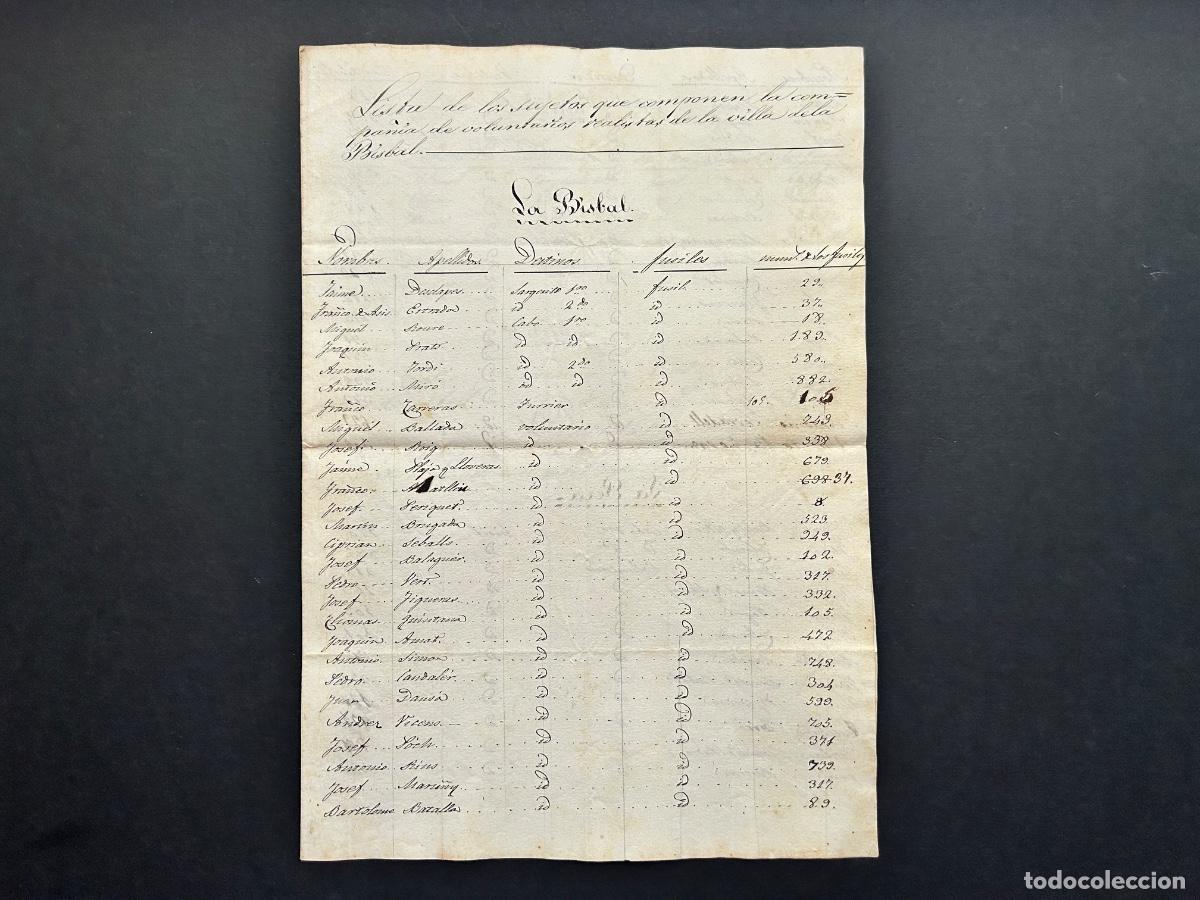 Lista de los sujetos que componen la com=
pañia de voluntarios realistas de la villa dela
Bisbal.
La Bisbal.
Nombres Apellidos Destinos fusiles num.s de los fusiles
Jaime Desclapes Sargento 1ro fusil 29.
Franco de Asis Estrada id 2do id 37.
Miguel Roure Cabo 1ro id 18.
Joaquin Prats id id id 189.
Antonio Jordi id 2do id 580.
Antonio Miró id id id 882.
Franco Carreras Furrier id 105. 106
Miguel Ballada voluntario id 243.
Josef Roig id id 338
Jaime Plaja y Lloveras id id 679.
Franco id id 698 37.
Josef Periquet id id 8.
Martin Brugada id id 523
Ciprian Seballs id id 949.
Josef Balaguer id id 102.
Pedro Vert id id 317.
Josef Figueras id id 332.
Thomas Quintana id id 105.
Joaquin Amat id id 472
Antonio Simon id id 748.
Pedro Candaler id id 304
Juan Dausà id id 599.
Andres Vicens id id 705.
Josef Poch id id 371
Antonio Pins id id 739.
Josef Maruny id id 317.
Bartolome Batalla id id 89.
todocoleccion